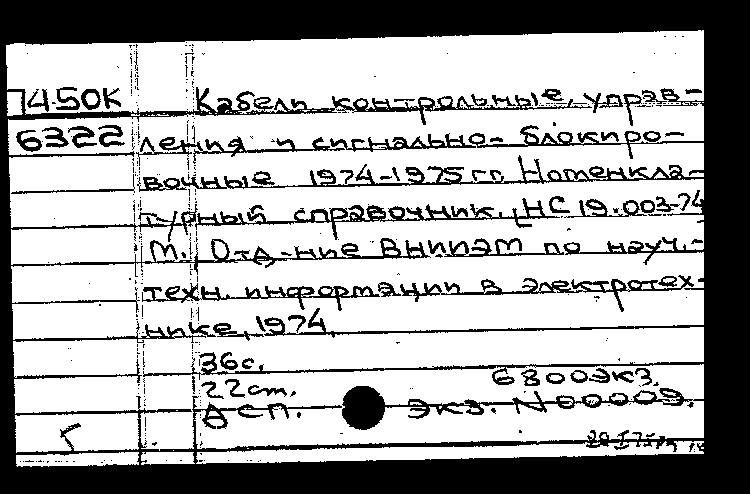 74-50К Кабели контрольные, управ-
6322 ления и сигнально-блокиро-
вочные 1974-1975 гг. Номенкла-
турный справочник. [НС 19.003-74
М., Отд-ние ВНИИЭМ по науч.-
техн. информации в электротех-
нике, 1974.
36с.
22cm. 6800экз.
ДСП. Экз. N 00009.